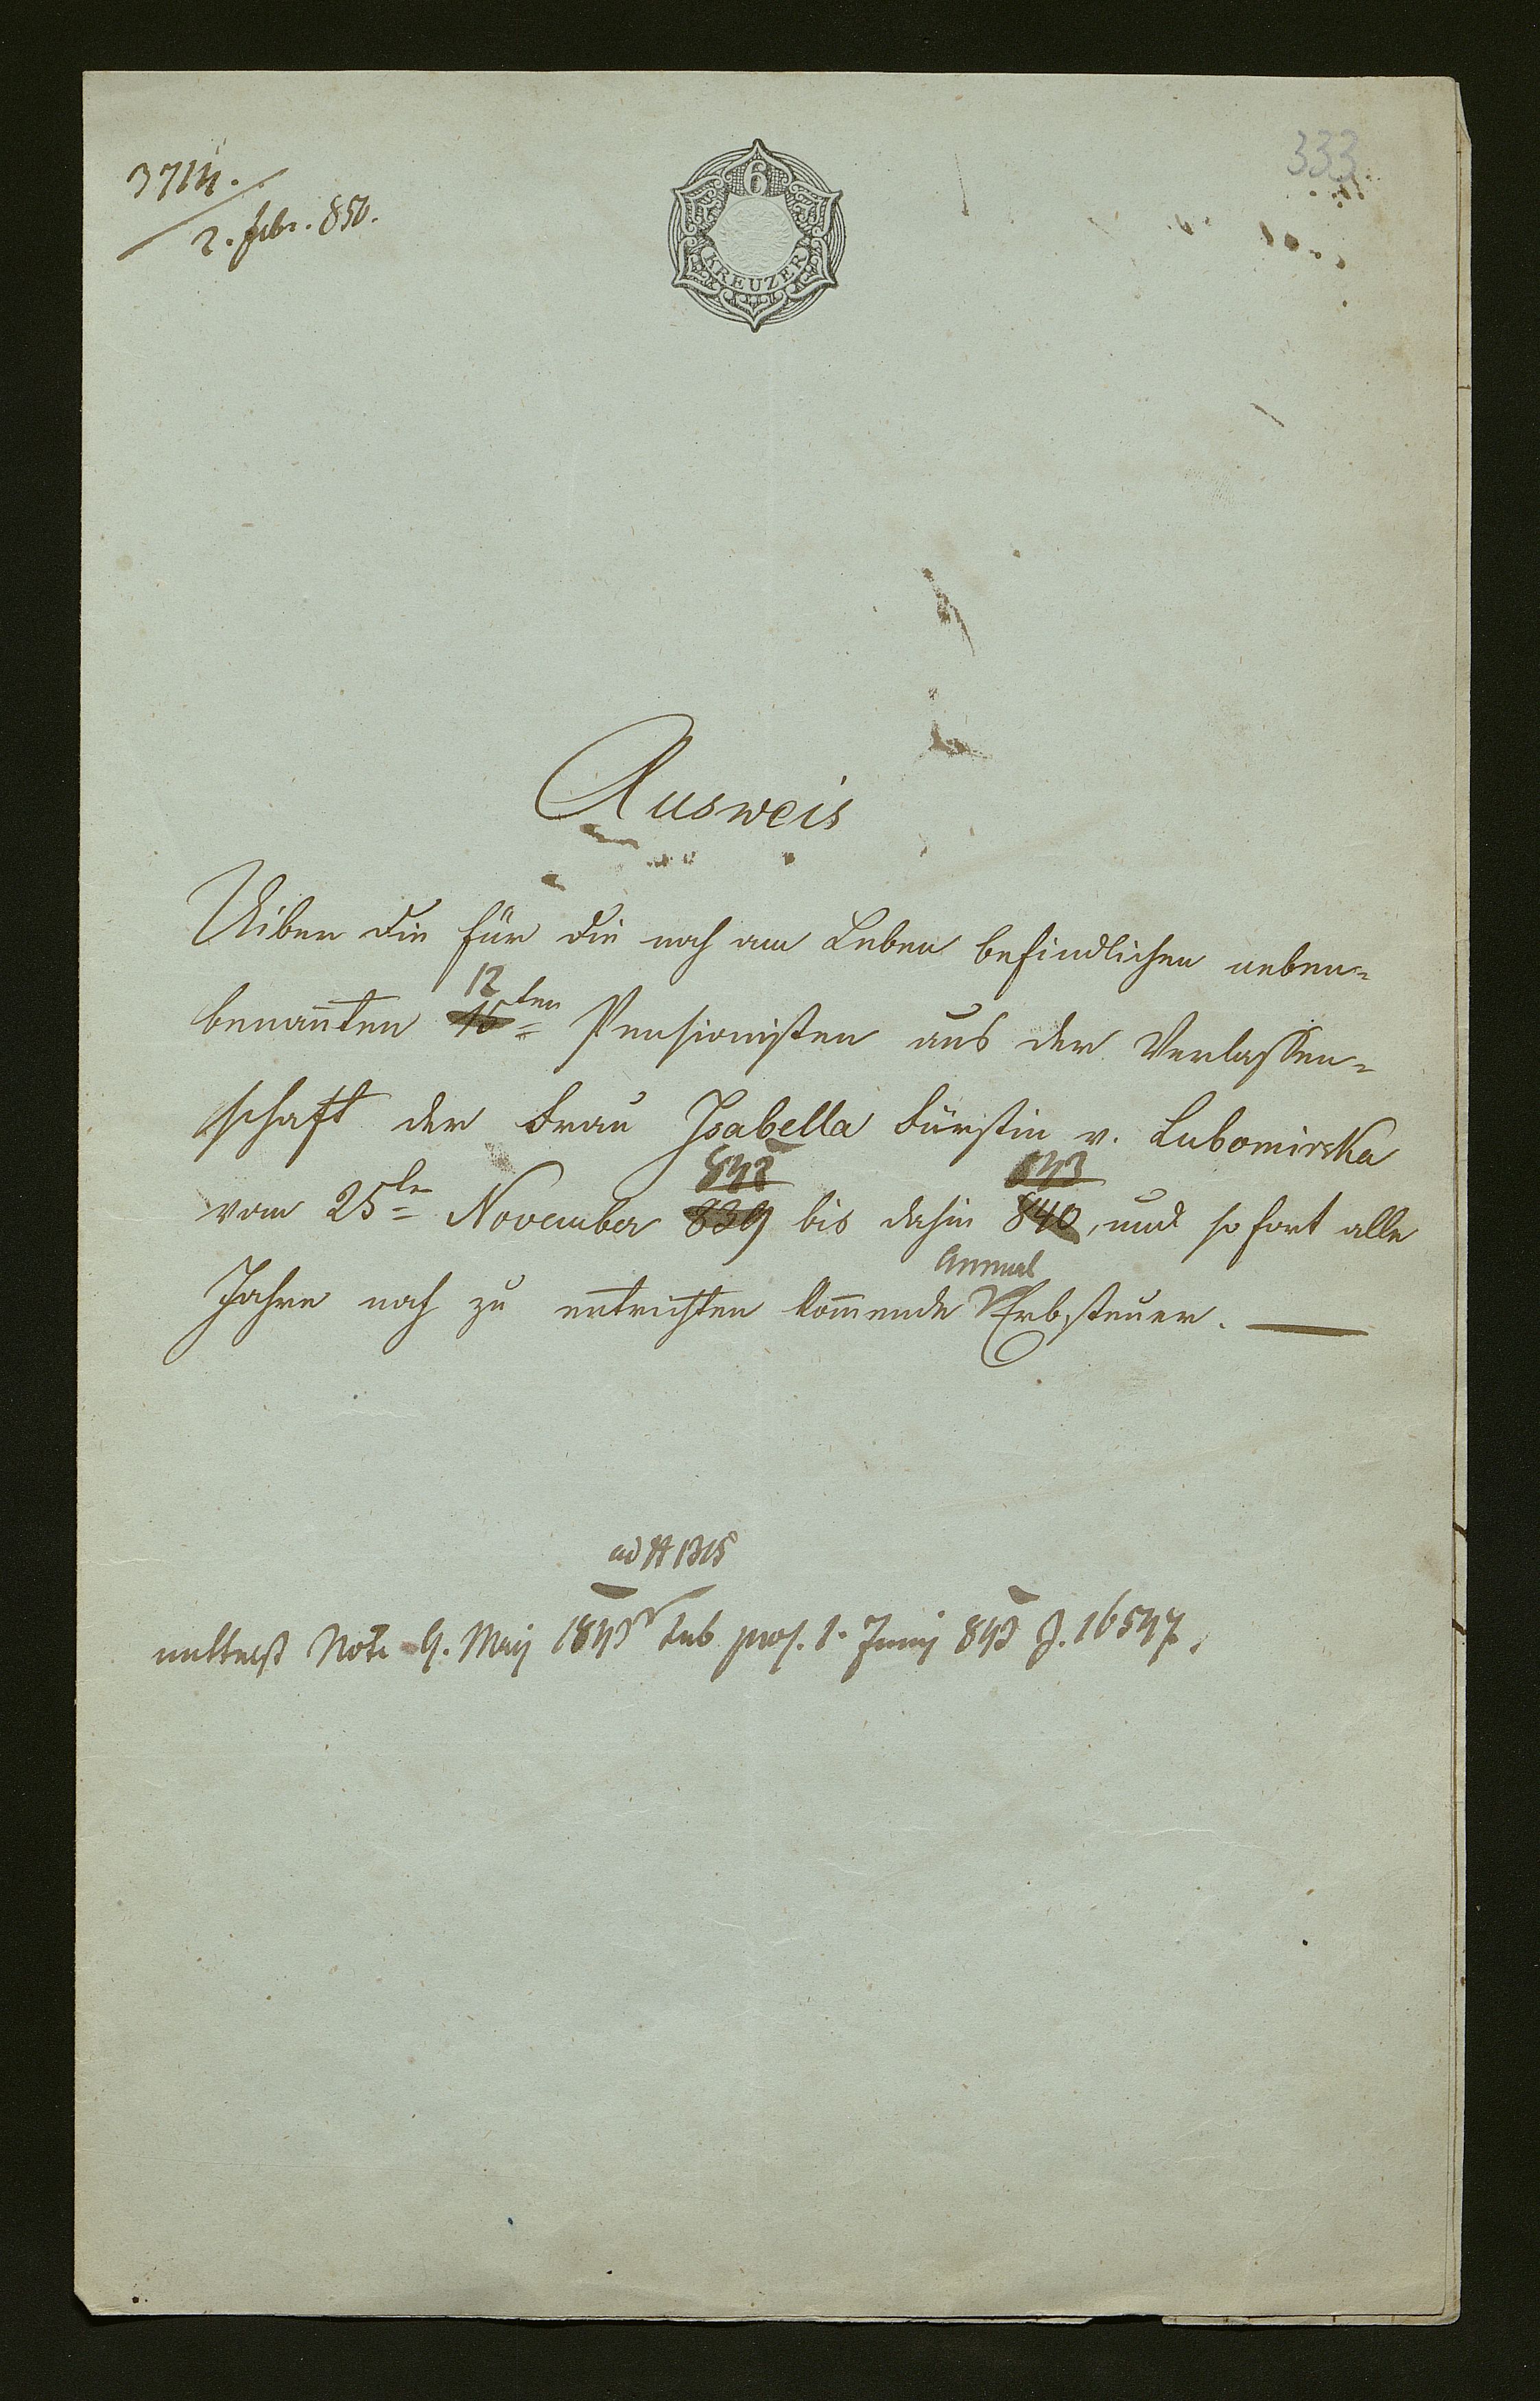 333
3714.
2. Febr. 850.
6
KREUZER
Ausweis
Uiber die für die noch am Leben befindlichen neben-
12
benañten 15ten Pensionisten aus der Verlassen-
schaft der Frau Isabella Fürstin v. Lubomirska
842 843
vom 25ten November 839 bis dahin 840, und sofort alle
Annual
Jahre noch zu entrichten kom̄ende Erbsteuer.
ad 1315
mittelst Note 9. Maij 1843 sub pros. 1. Junij 843 Z. 16547.